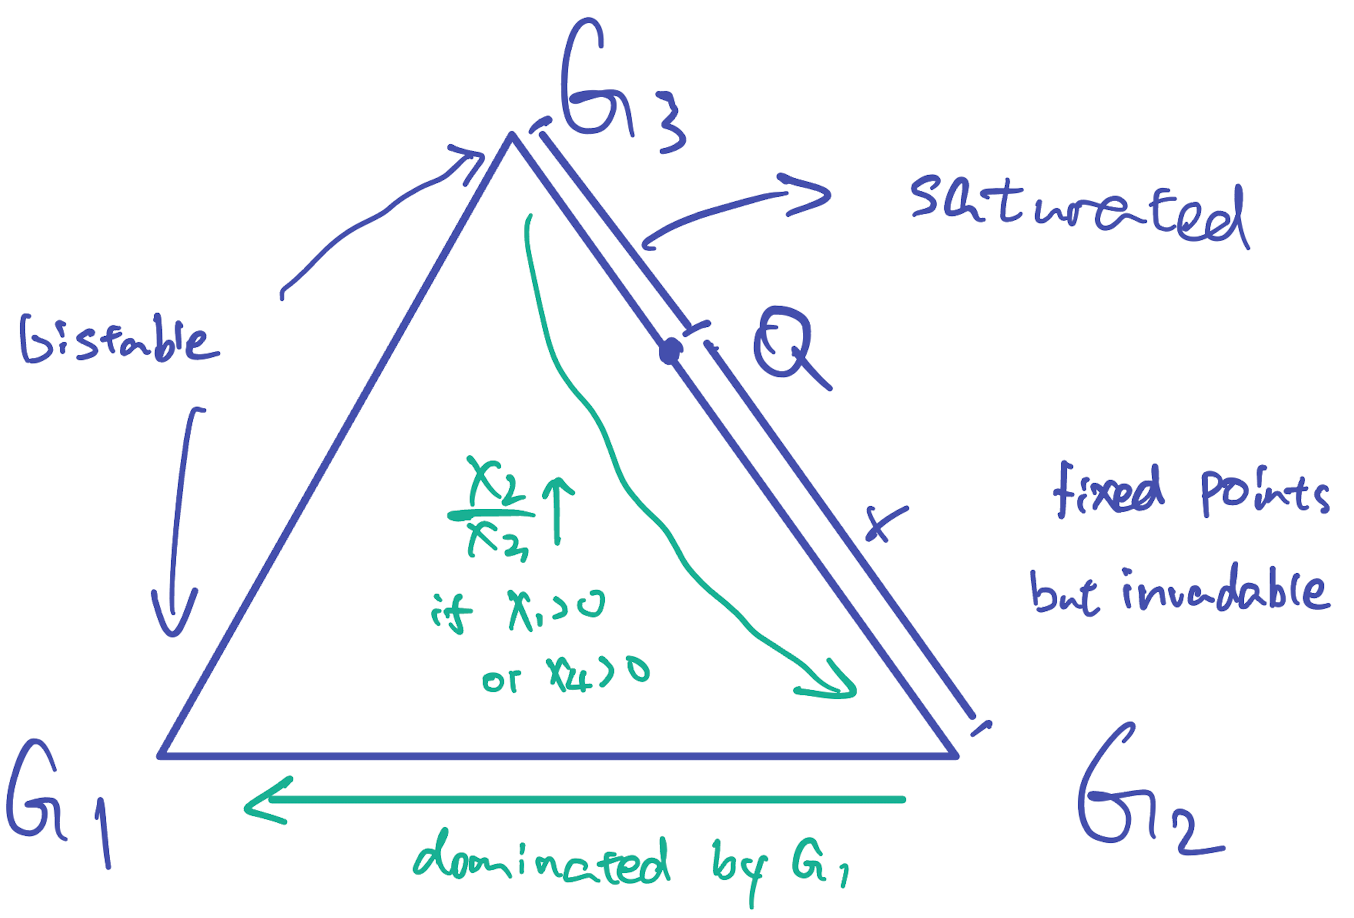 G3
saturated
bistable
Q
x2/x3 ↑
if x1>0
or x4>0
x
fixed points
but invadable
G1
G2
dominated by G1